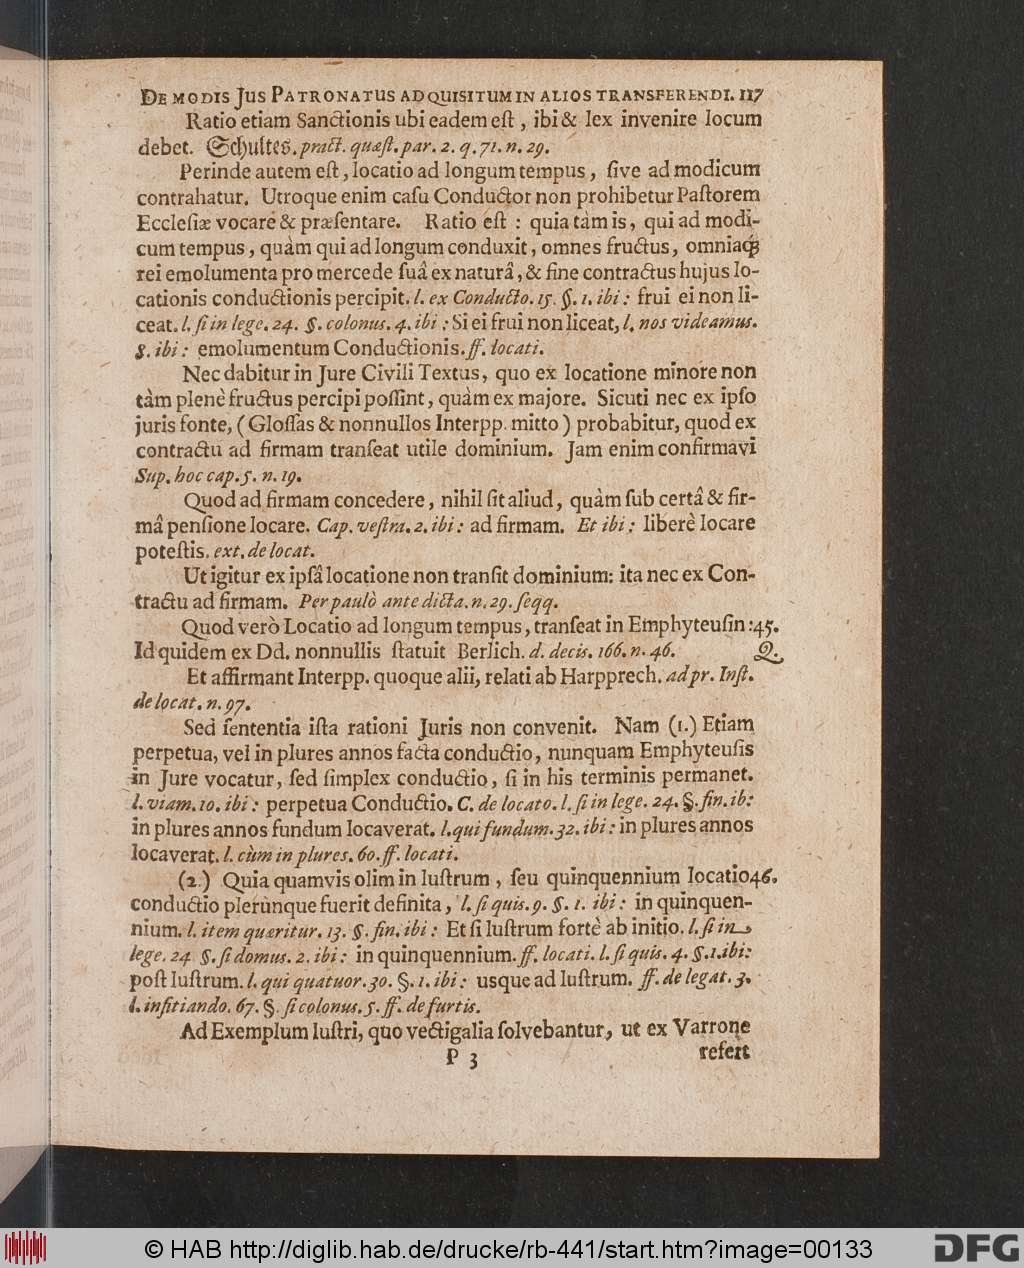 DE MODIS JUS PATRONATUS ADQUISITUM IN ALIOS TRANSFERENDI. 117
Ratio etiam Sanctionis ubi eadem eſt, ibi & lex invenire locum
debet. Schultes. pract. quæſt. par. 2. q. 71. n. 29.
Perinde autem eſt, locatio ad longum tempus, ſive ad modicum
contrahatur. Utroque enim caſu Conductor non prohibetur Paſtorem
Eccleſiæ vocare & præſentare. Ratio eſt: quia tàm is, qui ad modi-
cum tempus, quàm qui ad longum conduxit, omnes fructus, omniaq́;
rei emolumenta pro mercede ſuâ ex naturâ, & fine contractus hujus lo-
cationis conductionis percipit. l. ex Conducto. 15. §. 1. ibi: frui ei non li-
ceat. l. ſi in lege. 24. §. colonus. 4. ibi: Si ei frui non liceat, l. nos videamus.
§. ibi: emolumentum Conductionis. ff. locati.
Nec dabitur in Jure Civili Textus, quo ex locatione minore non
tàm plenè fructus percipi poſſint, quàm ex majore. Sicuti nec ex ipſo
juris fonte, (Gloſſas & nonnullos Interpp. mitto) probabitur, quod ex
contractu ad firmam tranſeat utile dominium. Jam enim confirmavi
Sup. hoc cap. 5. n. 19.
Quod ad firmam concedere, nihil ſit aliud, quàm ſub certâ & fir-
mâ penſione locare. Cap. veſtra. 2. ibi: ad firmam. Et ibi: liberè locare
poteſtis. ext. de locat.
Ut igitur ex ipſâ locatione non tranſit dominium: ita nec ex Con-
tractu ad firmam. Per paulò ante dicta. n. 29. ſeqq.
Quod verò Locatio ad longum tempus, tranſeat in Emphyteuſin: 45.
Id quidem ex Dd. nonnullis ſtatuit Berlich. d. decis. 166. n. 46. Q.
Et affirmant Interpp. quoque alii, relati ab Harpprech. ad pr. Inſt.
de locat. n. 97.
Sed ſententia iſta rationi Juris non convenit. Nam (1.) Etiam
perpetua, vel in plures annos facta conductio, nunquam Emphyteuſis
in Jure vocatur, ſed ſimplex conductio, ſi in his terminis permanet.
l. viam. 10. ibi: perpetua Conductio. C. de locato. l. ſi in lege. 24. §. fin. ib:
in plures annos fundum locaverat. l. qui fundum. 32. ibi: in plures annos
locaverat. l. cùm in plures. 60. ff. locati.
(2.) Quia quamvis olim in luſtrum, ſeu quinquennium locatio 46.
conductio plerùnque fuerit definita, l. ſi quis. 9. §. 1. ibi: in quinquen-
nium. l. item quæritur. 13. §. fin. ibi: Et ſi luſtrum fortè ab initio. l. ſi in
lege. 24. §. ſi domus. 2. ibi: in quinquennium. ff. locati. l. ſi quis. 4. §. 1. ibi:
poſt luſtrum. l. qui quatuor. 30. §. 1. ibi: usque ad luſtrum. ff. de legat. 3.
l. infitiando. 67. §. ſi colonus. 5. ff. de furtis.
Ad Exemplum luſtri, quo vectigalia ſolvebantur, ut ex Varrone
P 3 refert
© HAB http://diglib.hab.de/drucke/rb-441/start.htm?image=00133
DFG